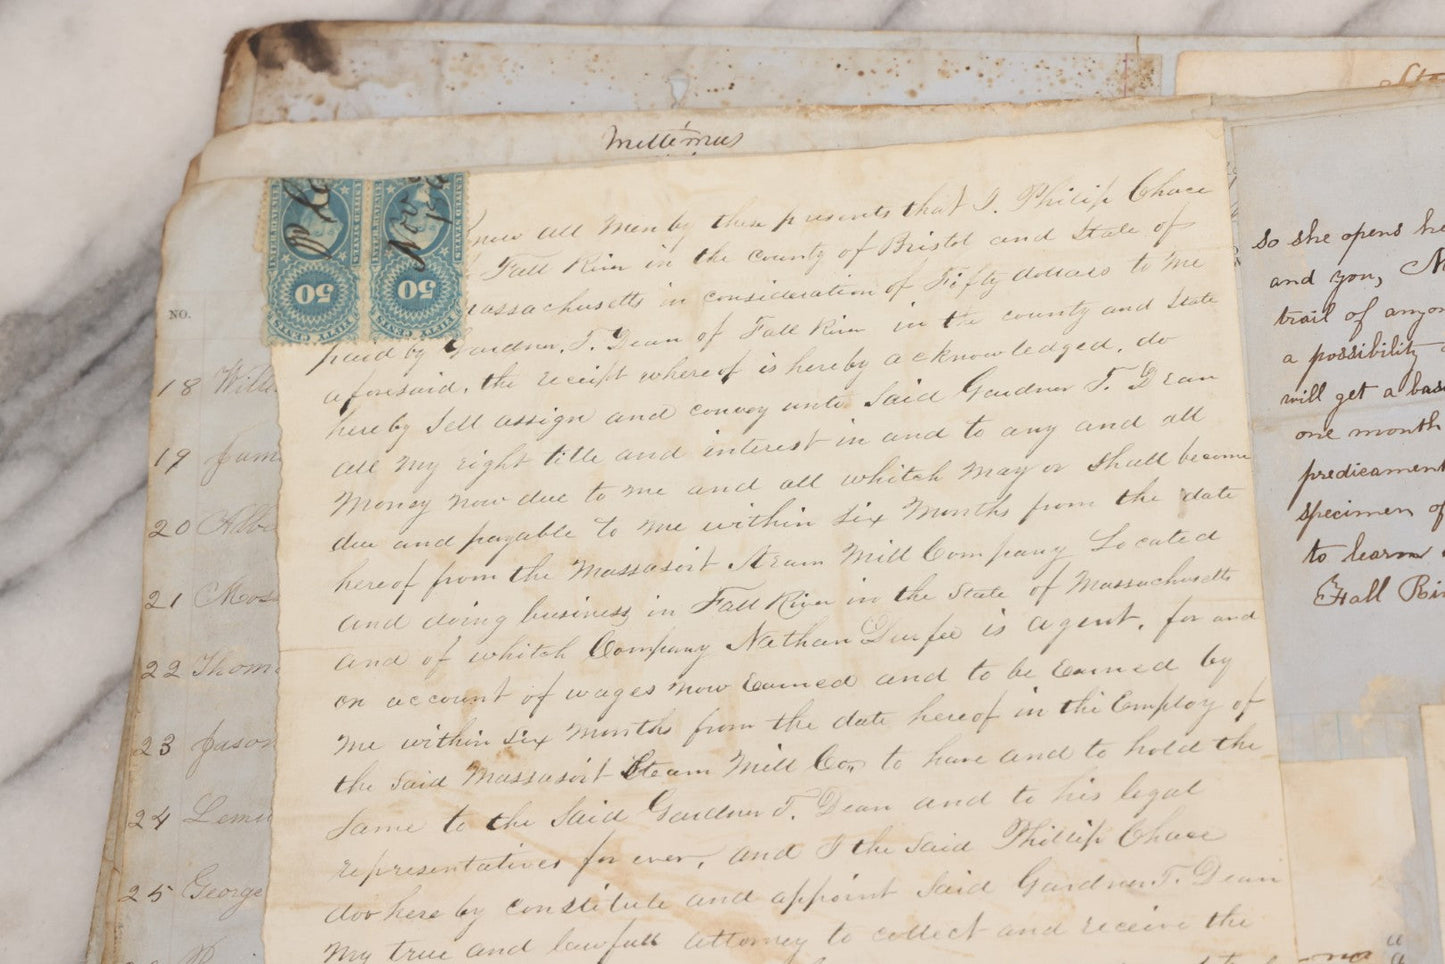 Mittimus
Know all Men by these presents that I. Philip Chace
Fall River in the county of Bristol and State of
Massachusetts in consideration of Fifty dollars to me
paid by Gardner. T. Dean of Fall River in the county and State
aforesaid, the receipt whereof is hereby acknowledged. do
hereby Sell assign and convey unto Said Gardner T. Dean
all my right title and interest in and to any and all
Money now due to me and all whitch may or Shall become
due and payable to me within Six Months from the date
hereof from the Massasoit Steam Mill Company Located
and doing business in Fall River in the State of Massachusetts
and of whitch Company Nathan Durfee is agent. for and
on account of wages now Earned and to be Earned by
me within Six Months from the date hereof in the Employ of
the Said Massasoit Steam Mill Co, to have and to hold the
Same to the Said Gardner T. Dean and to his legal
representatives for ever, and I the Said Phillip Chace
doo here by constitute and appoint Said Gardner T. Dean
My true and lawfull attorney to collect and receive the
INTER.REVENUE
UNITED STATES
50
FIFTY CENTS
INTER.REVENUE
UNITED STATES
50
FIFTY CENTS
Nov
NO.
18
19
20
21
22 Thom
23 Jason
24 Lemu
25 George
so she opens he
and you,
trail of anyon
a possibility
will get a base
one month
predicament
specimen of
to learn
Fall Riv